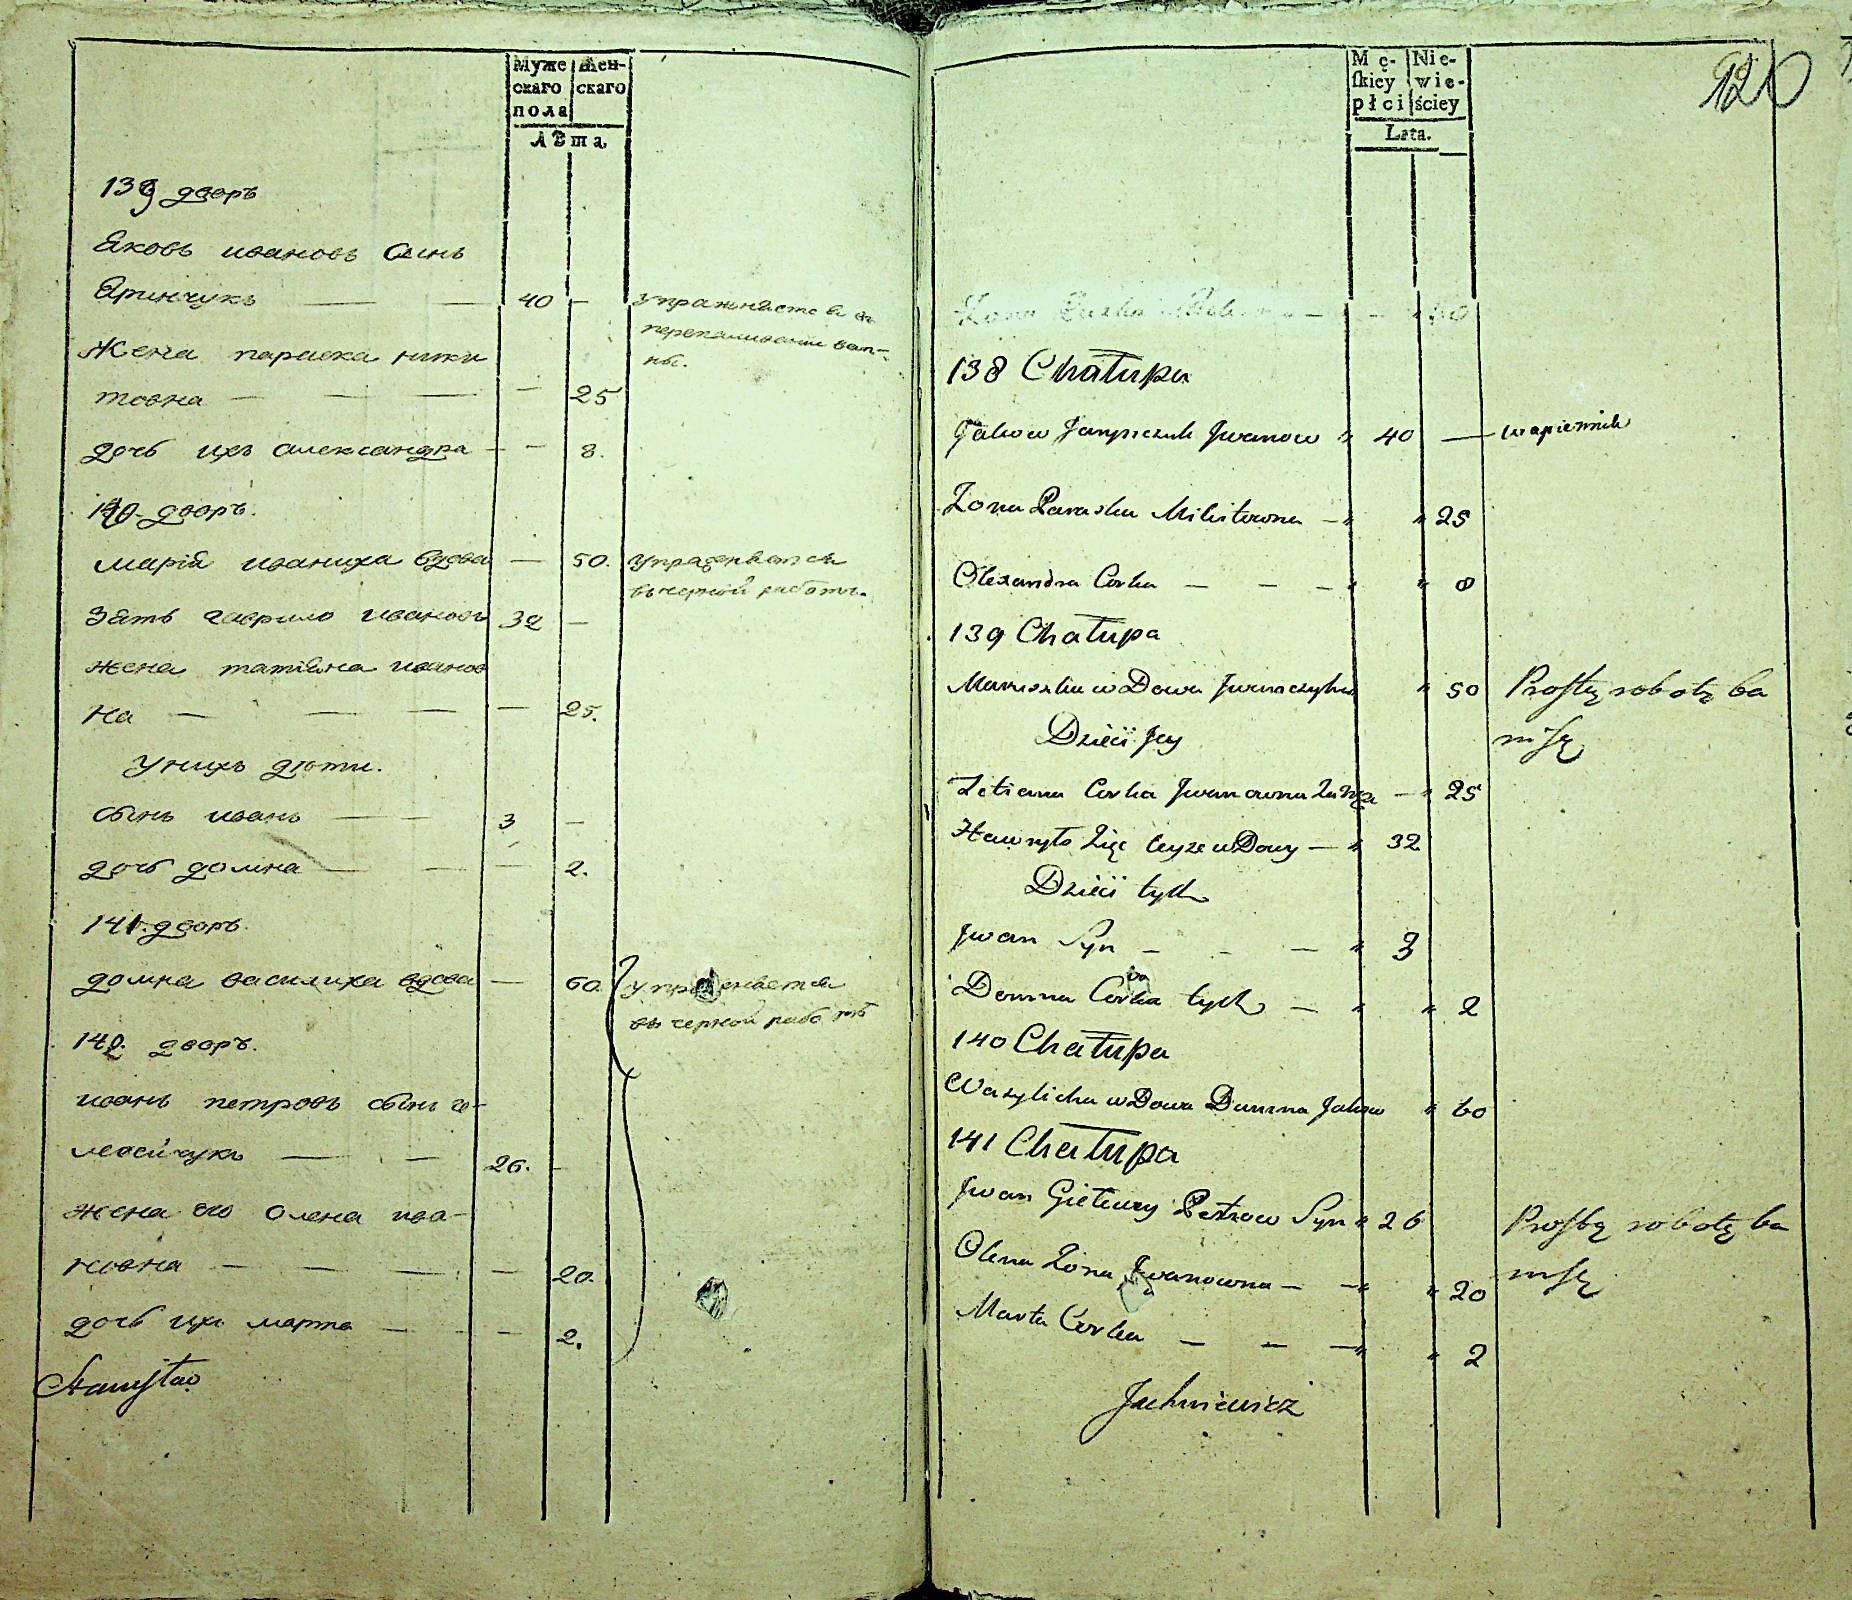 Муже
скаго
пола
Жен-
скаго
Лѣта,
139 дворъ
Яковъ ивановъ сынъ
Яринчукъ — — 40 —
упражняется въ
перепаливании вап-
ны.
Жена параска ники
товна — — — — 25
дочь ихъ александра — — 8.
140 дворъ.
марія иваниха вдова — 50.
упражняется
въ черной работы.
Зять гаврило ивановъ 32 —
жена татіяна иванов
на — — — — 25.
У нихъ дѣти.
сынъ иванъ — — 3 —
дочь домна — — — 2.
141. дворъ.
домна василиха вдова — 60
упражняется
въ черной работѣ
142. дворъ.
иванъ петровъ сынъ ге-
— — 26. —
жена его олена ива-
новна — — — — 20.
дочь ихъ марта — — — 2.
Stanisław
Mę-
skiey
płci
Nie-
wie-
ściey
Lata.
120
Żona
138 Chałupa
Jakow Jarynczuk Jwanow " 40 — wapiennik
Żona Paraska Mikitowna — " " 25
Olexandra Corka — — — " " 8
139 Chałupa
Maruszka wDowa Jwanczycha " 50 Prostą robotą ba
wi się
Dzieci Jey
Tetiana Corka Jwanowna — " 25
Hawryło Zięć teyże wDowy — " 32
Dzieci tych
Jwan Syn — — — " 3
Domna Corka tych — " " 2
140 Chałupa
Wasylicha wDowa Dumna " 60
141 Chałupa
Jwan Petrow Syn " 26 Prostą robotą ba
wi się
Olena Żona Jwanowna — — " " 20
Marta Corka — — — " " 2
Jachniewicz